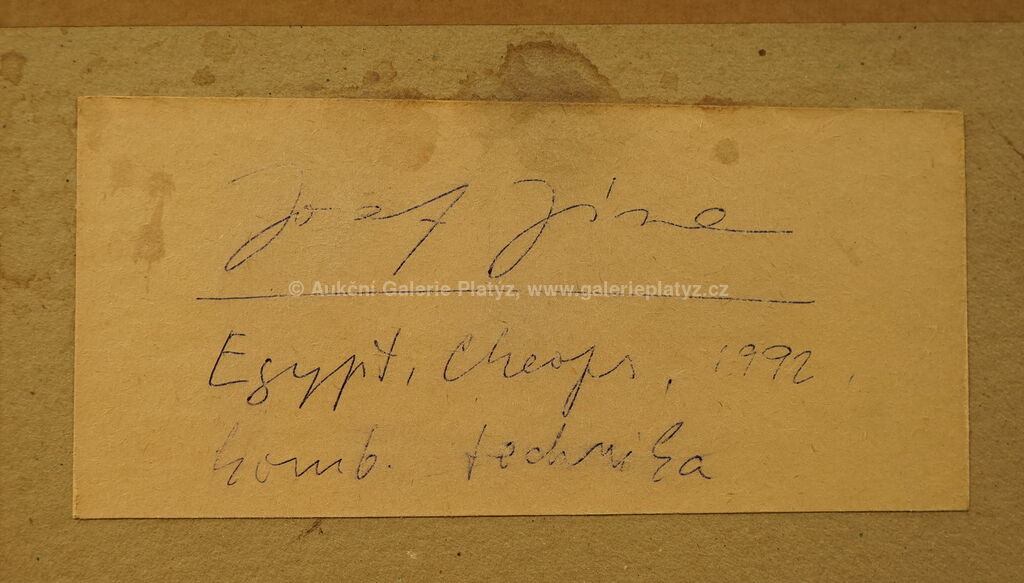 Josef Jíra
© Aukční Galerie Platýz, www.galerieplatyz.cz
Egypt, Cheops, 1992,
komb. technika